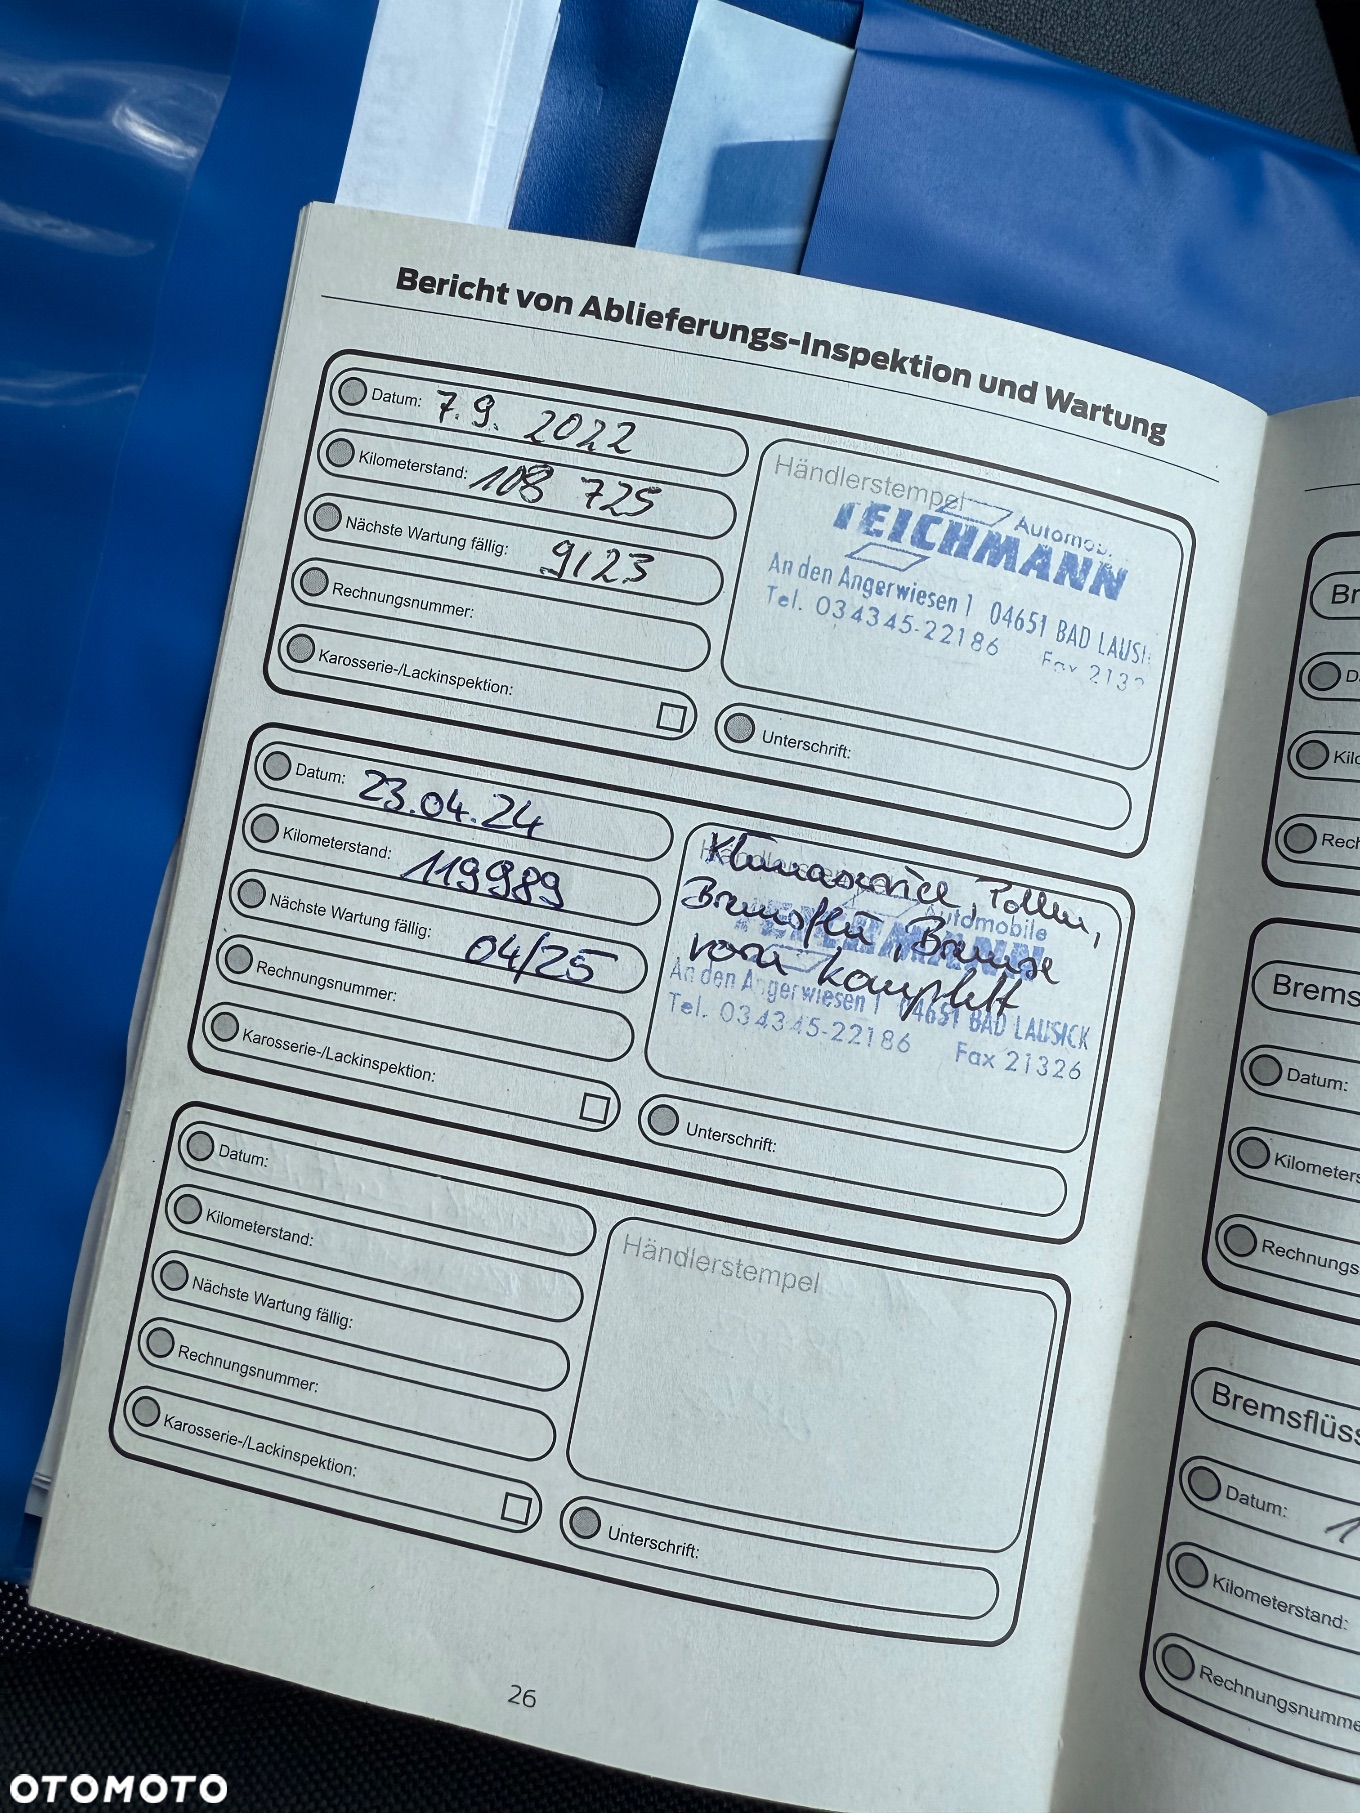 Bericht von Ablieferungs-Inspektion und Wartung
Datum: 7.9.2022
Kilometerstand: 108 725
Nächste Wartung fällig: 9/23
Rechnungsnummer:
Karosserie-/Lackinspektion:
Händlerstempel
Automob
TEICHMANN
An den Angerwiesen 1 04651 BAD LAUSI
Tel. 034345-22186 Fax 2132
Unterschrift:
Datum: 23.04.24
Kilometerstand: 119989
Nächste Wartung fällig: 04/25
Rechnungsnummer:
Karosserie-/Lackinspektion:
Händlerstempel
Klimaservice, Pollen,
Bremsflü, Bremse
vorn komplett
Automobile
TEICHMANN
An den Angerwiesen 1 04651 BAD LAUSICK
Tel. 034345-22186 Fax 21326
Unterschrift:
Datum:
Kilometerstand:
Nächste Wartung fällig:
Rechnungsnummer:
Karosserie-/Lackinspektion:
Händlerstempel
Unterschrift:
26
Br
D
Kilo
Rech
Brems
Datum:
Kilometers
Rechnungs
Bremsflüss
Datum: 1
Kilometerstand:
Rechnungsnumme
OTOMOTO